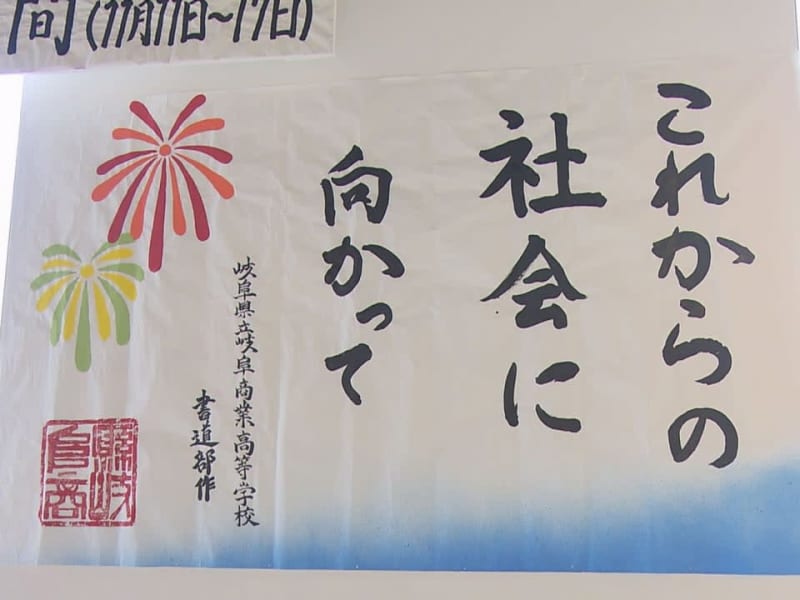 間(11月11日~17日)
これからの
社会に
向かって
岐阜県立岐阜商業高等学校
書道部作
縣岐
阜商